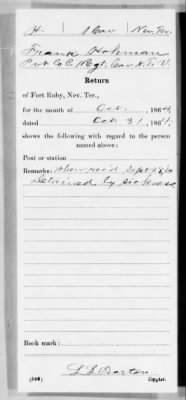 H | 1 Cav | Nev. Ter.
Frank Hohman
Pvt Co C 1 Regt Cav N.T.V.
Return
of Fort Ruby, Nev. Ter.,
for the month of Oct., 1864
dated Oct 31, 1864.
shows the following with regard to the person
named above:
Post or station
Remarks: When rec'd Sept
Detained by sickness
Book mark:
Barton
(548) Copyist.